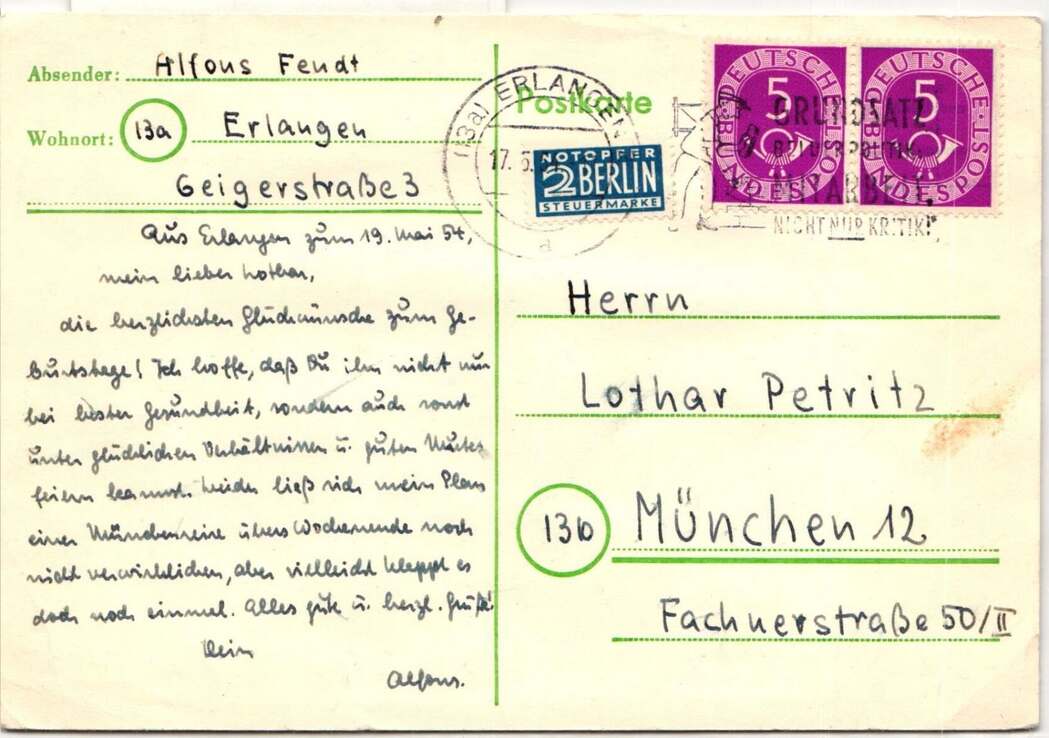 Absender: Alfons Fendt
Wohnort: 13a Erlangen
Geigerstraße 3
Aus Erlangen zum 19. Mai 54,
mein lieber Lothar,
die herzlichsten Glückwünsche zum Ge-
burtstage! Ich hoffe, daß Du ihn nicht nur
bei bester Gesundheit, sondern auch sonst
unter glücklichen Verhältnissen u. guten Mutes
feiern kannst. Leider ließ sich mein Plan
einer Münchenreise übers Wochenende noch
nicht verwirklichen, aber vielleicht klappt es
doch noch einmal. Alles gute u. herzl. Grüße!
Dein
Alfons.
Postkarte
(13a) ERLANGEN
17. 5.
a
NOTOPFER
2 BERLIN
STEUERMARKE
DEUTSCHE BUNDESPOST
5
DEUTSCHE BUNDESPOST
5
GRUNDSATZ
BEI DER POLITIK:
MITARBEIT,
NICHT NUR KRITIK!
Herrn
Lothar Petritz
13b München 12
Fachnerstraße 50/II